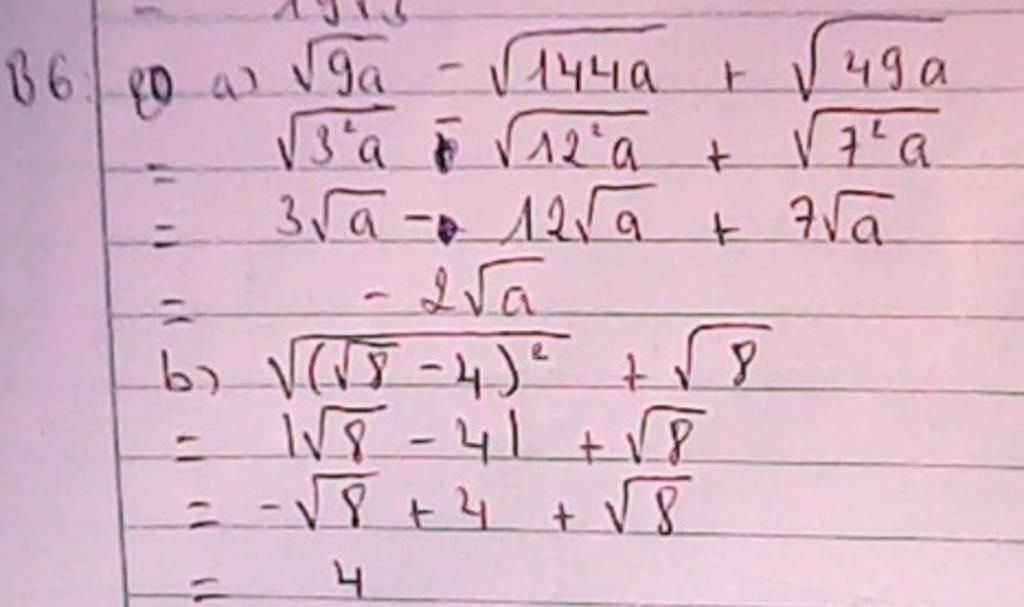 B6. a) √9a - √144a + √49a
= √3²a - √12²a + √7²a
= 3√a - 12√a + 7√a
= - 2√a
b) √(√8 - 4)² + √8
= |√8 - 4| + √8
= -√8 + 4 + √8
= 4